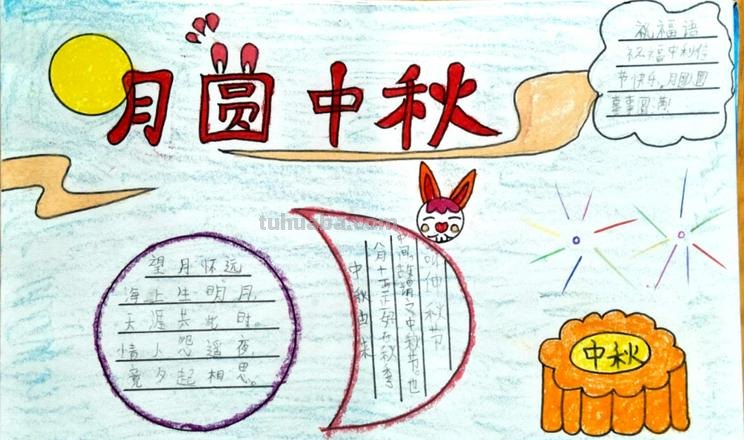 月圆中秋
祝福语
祝福中秋佳
节快乐,月圆圆
事事圆满!
tuhuaba.com
望月怀远
海上生明月,
天涯共此时。
情人怨遥夜,
竟夕起相思。
中秋由来
八月十五正好在秋季
中间,故谓之中秋节。也
叫仲秋节
中秋